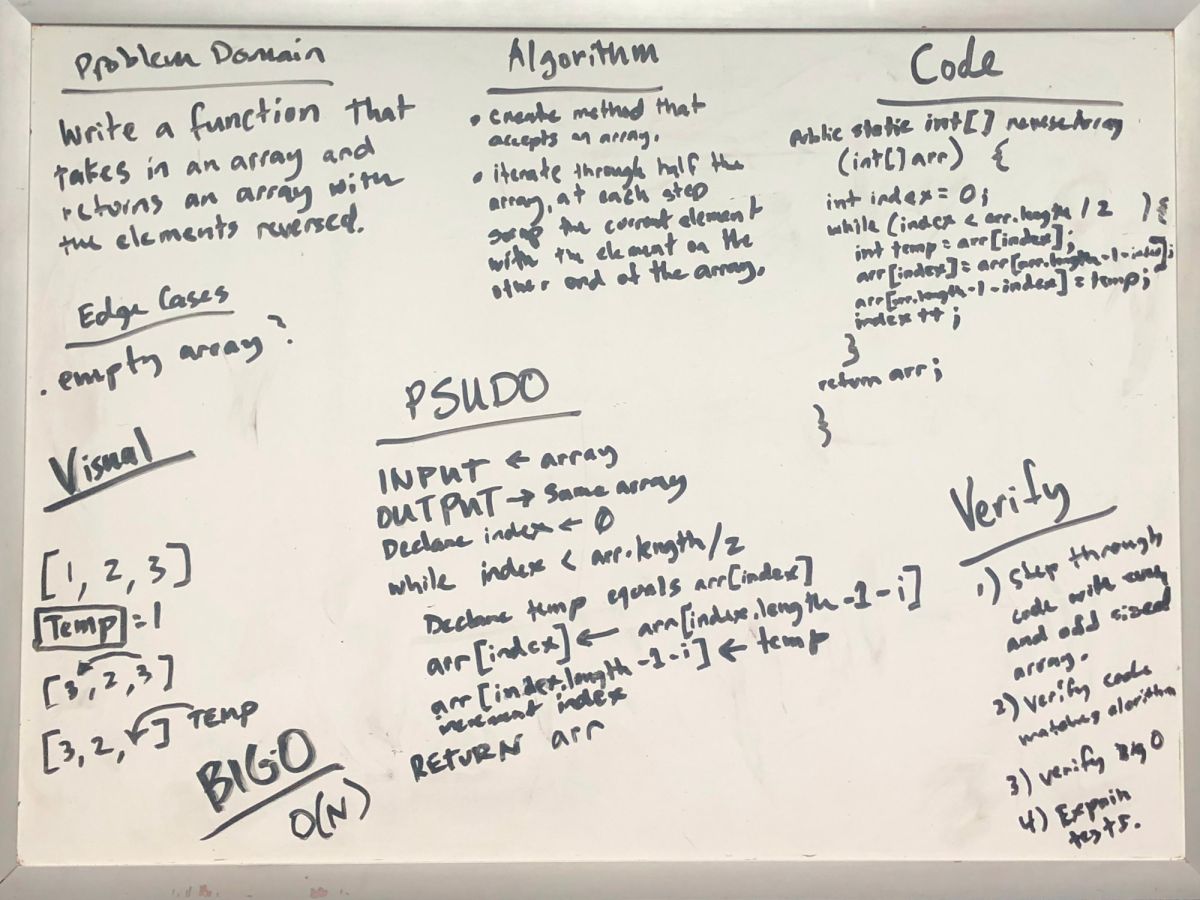 Problem Domain
Write a function that
takes in an array and
returns an array with
the elements reversed.
Edge Cases
. empty array?
Visual
[1, 2, 3]
Temp = 1
[3, 2, 3]
[3, 2, ] TEMP
BIG O
O(N)
Algorithm
• create method that
accepts an array.
• iterate through half the
array, at each step
swap the current element
with the element on the
other end of the array.
PSUDO
INPUT ← array
OUTPUT → same array
Declare index ← 0
while index < arr.length/2
Declare temp equals arr[index]
arr[index] ← arr[index.length -1 - i]
arr[index.length -1 - i] ← temp
increment index
RETURN arr
Code
public static int[] reverseArray
(int[] arr) {
int index = 0;
while (index < arr.length / 2 ) {
int temp = arr[index];
arr[index] = arr[arr.length -1 - index];
arr[arr.length -1 - index] = temp;
index ++;
}
return arr;
}
Verify
1) Step through
code with even
and odd sized
array.
2) verify code
matches alorithm
3) verify Big O
4) Expain
tests.